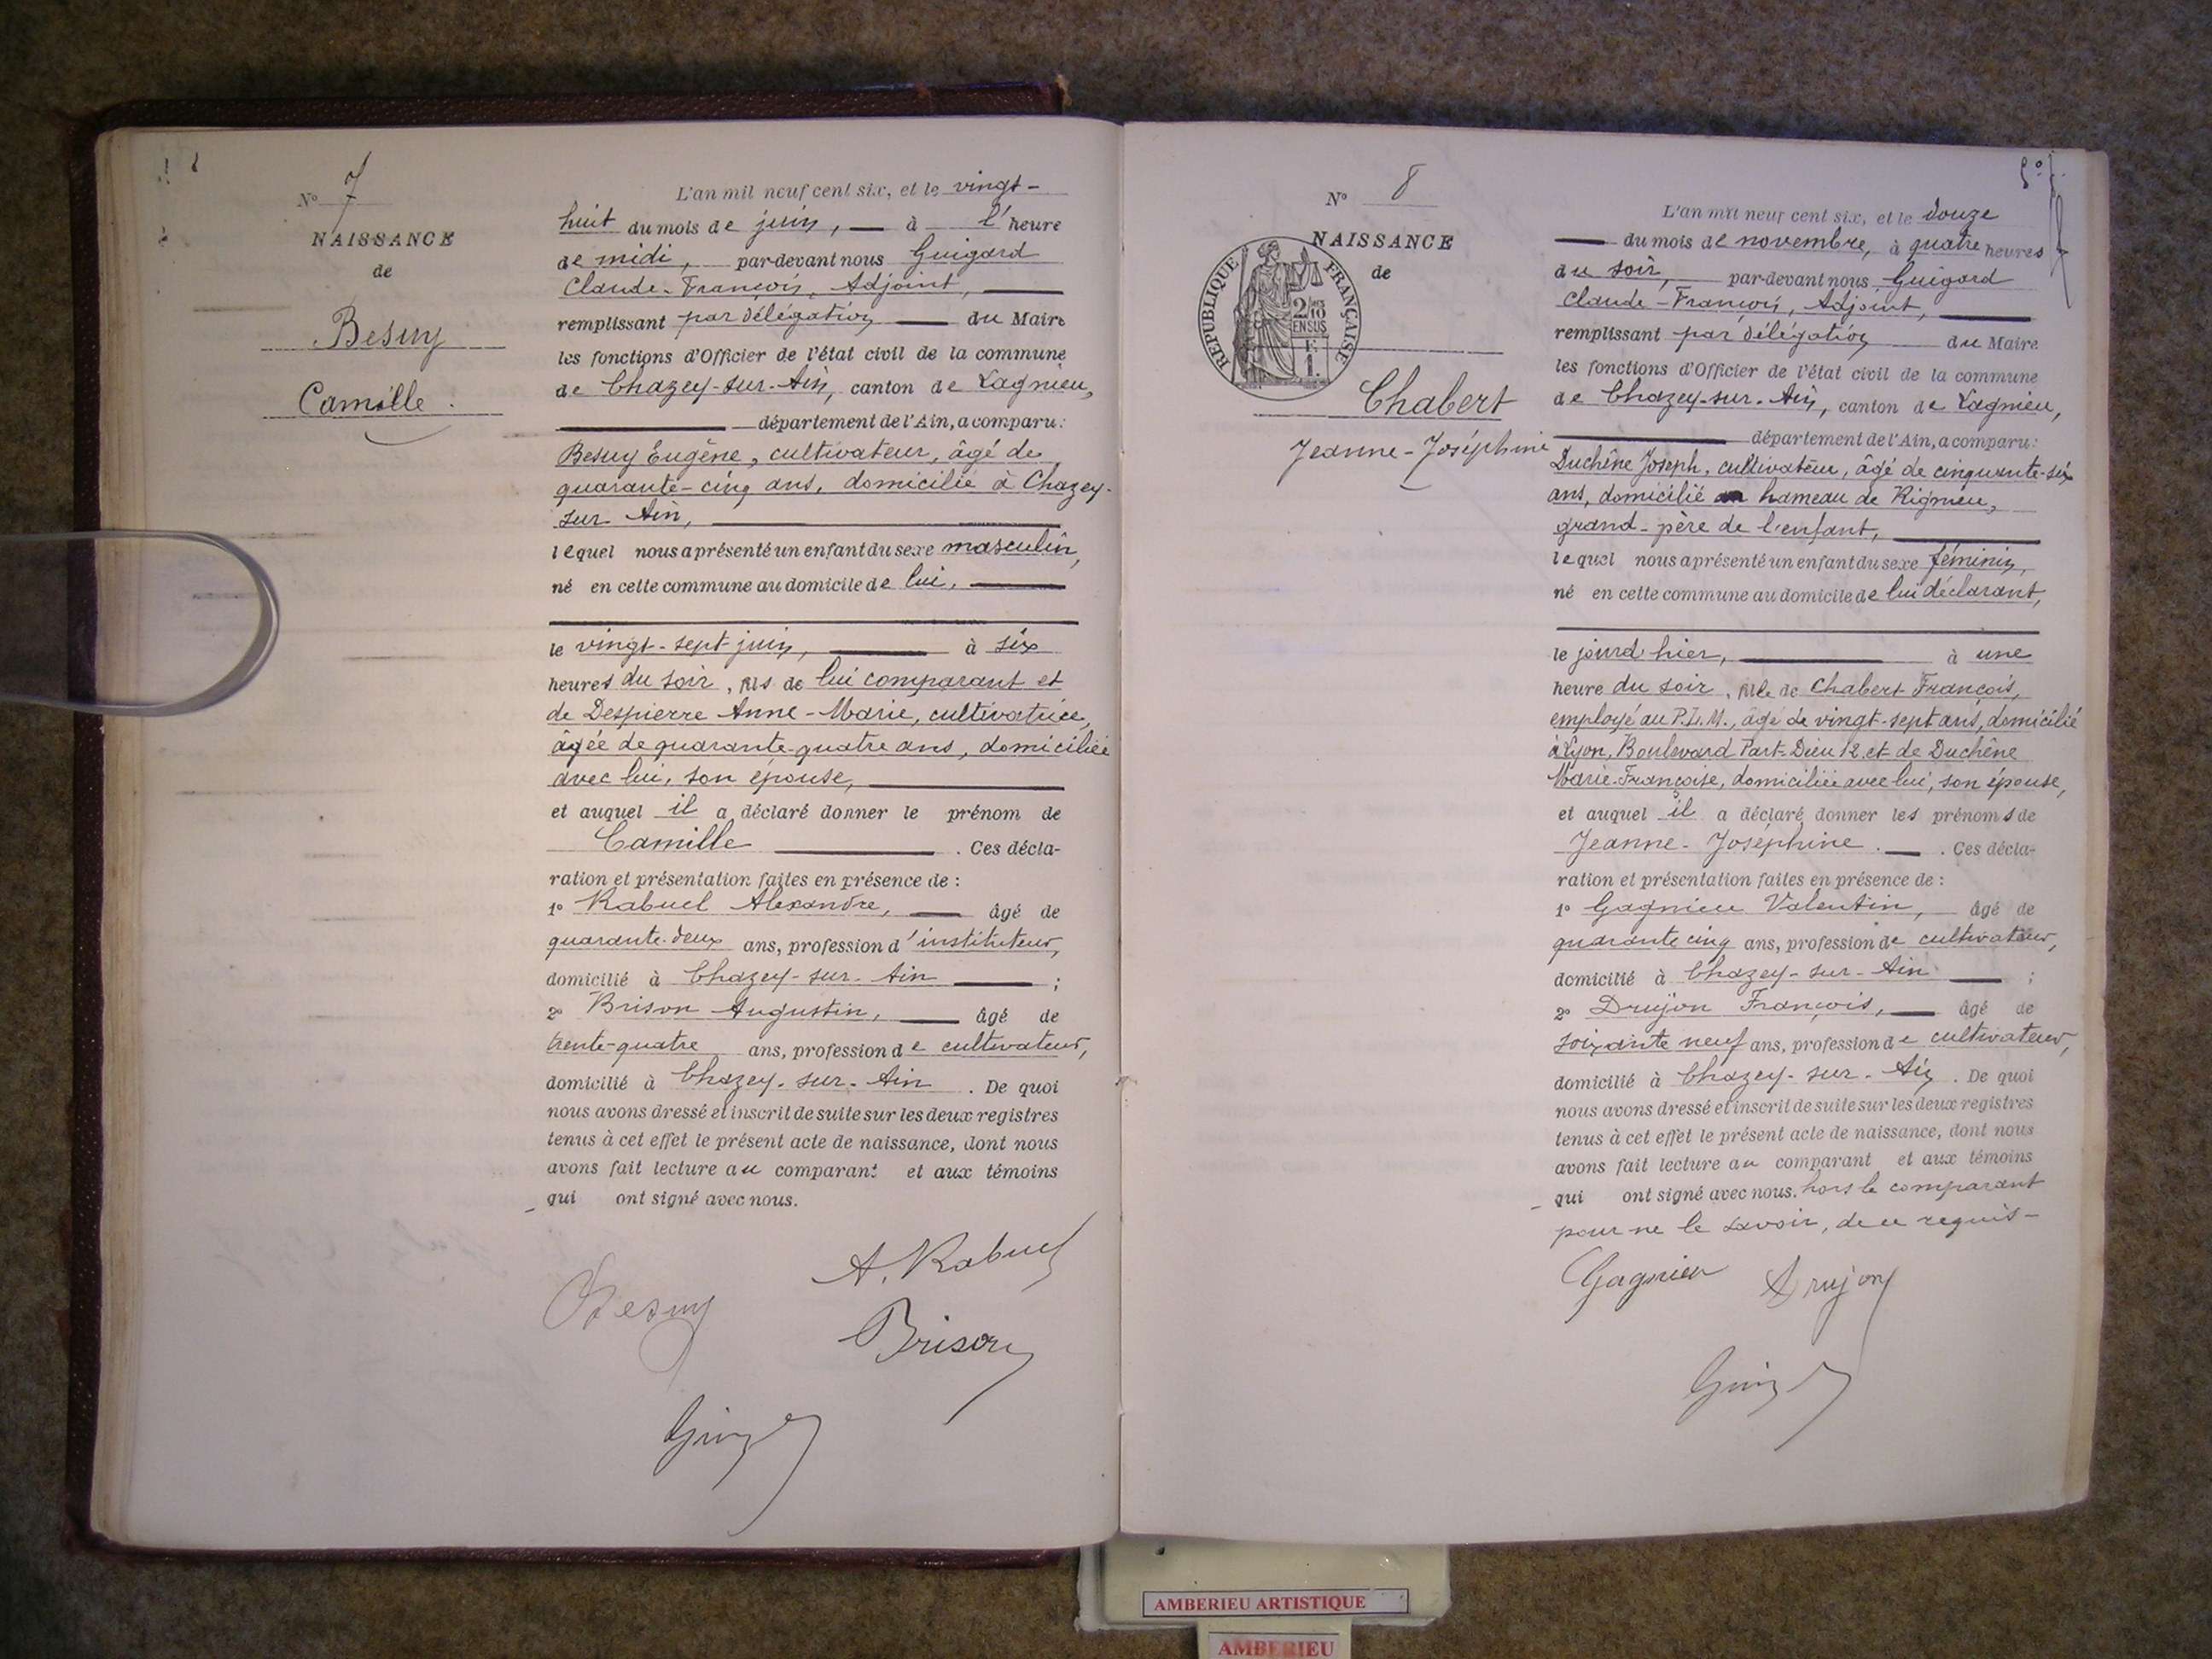 N° 7
NAISSANCE
de
Besuy
Camille.
L'an mil neuf cent six, et le vingt-
huit du mois de juin, à l'heure
de midi, par-devant nous Guigard
Claude-François, Adjoint,
remplissant par délégation du Maire
les fonctions d'Officier de l'état civil de la commune
de Chazey-sur-Ain, canton de Lagnieu,
département de l'Ain, a comparu:
Besuy Eugène, cultivateur, âgé de
quarante-cinq ans, domicilié à Chazey-
sur Ain,
lequel nous a présenté un enfant du sexe masculin,
né en cette commune au domicile de lui,
le vingt-sept juin, à six
heures du soir, fils de lui comparant et
de Despierre Anne-Marie, cultivatrice,
âgée de quarante-quatre ans, domiciliée
avec lui, son épouse,
et auquel il a déclaré donner le prénom de
Camille. Ces décla-
ration et présentation faites en présence de :
1° Rabuel Alexandre, âgé de
quarante-deux ans, profession d'instituteur,
domicilié à Chazey-sur-Ain ;
2° Brison Augustin, âgé de
trente-quatre ans, profession de cultivateur,
domicilié à Chazey-sur-Ain. De quoi
nous avons dressé et inscrit de suite sur les deux registres
tenus à cet effet le présent acte de naissance, dont nous
avons fait lecture au comparant et aux témoins
qui ont signé avec nous.
A. Rabuel
Besuy
Brison
N° 8
NAISSANCE
de
RÉPUBLIQUE FRANÇAISE
2/10
EN SUS
F
1.
Chabert
Jeanne-Joséphine
L'an mil neuf cent six, et le douze
du mois de novembre, à quatre heures
du soir, par-devant nous Guigard
Claude-François, Adjoint,
remplissant par délégation du Maire
les fonctions d'Officier de l'état civil de la commune
de Chazey-sur-Ain, canton de Lagnieu,
département de l'Ain, a comparu:
Duchêne Joseph, cultivateur, âgé de cinquante-six
ans, domicilié au hameau de Rignieu,
grand-père de l'enfant,
lequel nous a présenté un enfant du sexe féminin,
né en cette commune au domicile de lui déclarant,
le jourd'hier, à une
heure du soir, fille de Chabert François,
employé au P.L.M., âgé de vingt-sept ans, domicilié
à Lyon, Boulevard Part-Dieu 12, et de Duchêne
Marie-Françoise, domiciliée avec lui, son épouse,
et auquel il a déclaré donner les prénoms de
Jeanne-Joséphine. Ces décla-
ration et présentation faites en présence de :
1° Gagnieu Valentin, âgé de
quarante cinq ans, profession de cultivateur,
domicilié à Chazey-sur-Ain ;
2° Drujon François, âgé de
soixante neuf ans, profession de cultivateur,
domicilié à Chazey-sur-Ain. De quoi
nous avons dressé et inscrit de suite sur les deux registres
tenus à cet effet le présent acte de naissance, dont nous
avons fait lecture au comparant et aux témoins
qui ont signé avec nous. hors le comparant
pour ne le savoir, de ce requis-
Gagnieu Drujon
AMBERIEU ARTISTIQUE
AMBERIEU